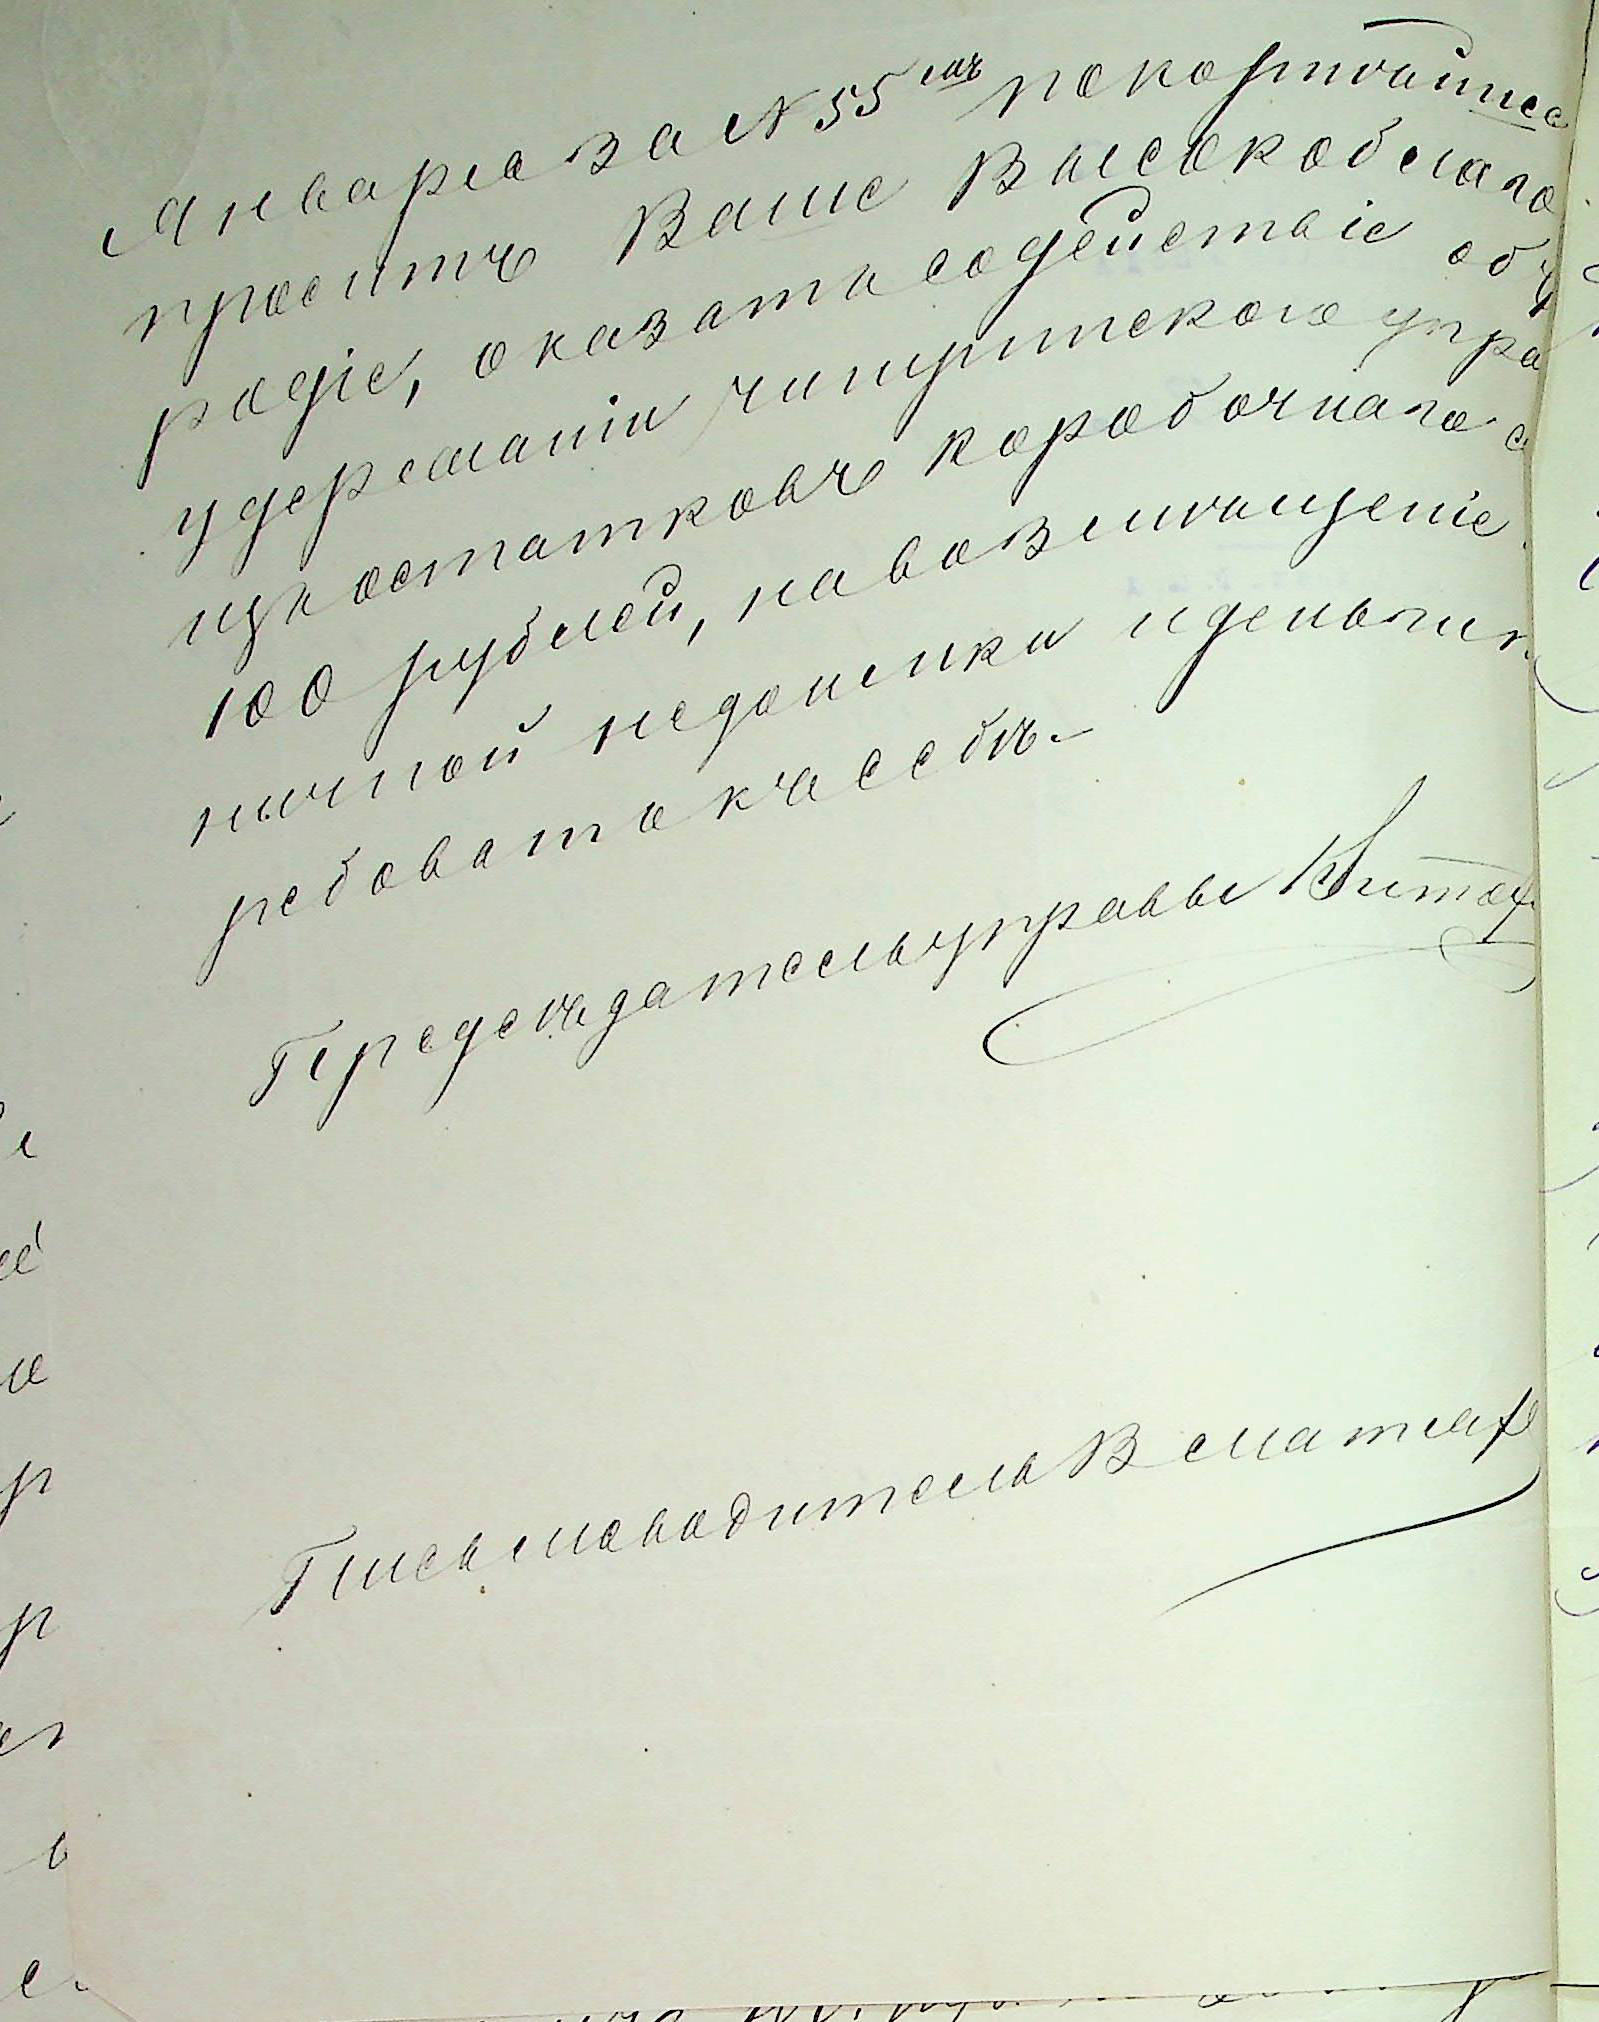 Января за № 55ᵐъ покорнѣйше
проситъ Ваше Высокоблаго
родіе, оказать содействіе объ
удержаніи упра
изъ остатковъ коробочнаго с
100 рублей, на возмѣщеніе
ничной недоимки и деньги п
ребовать къ себѣ.
Председатель управы
Письмоводитель